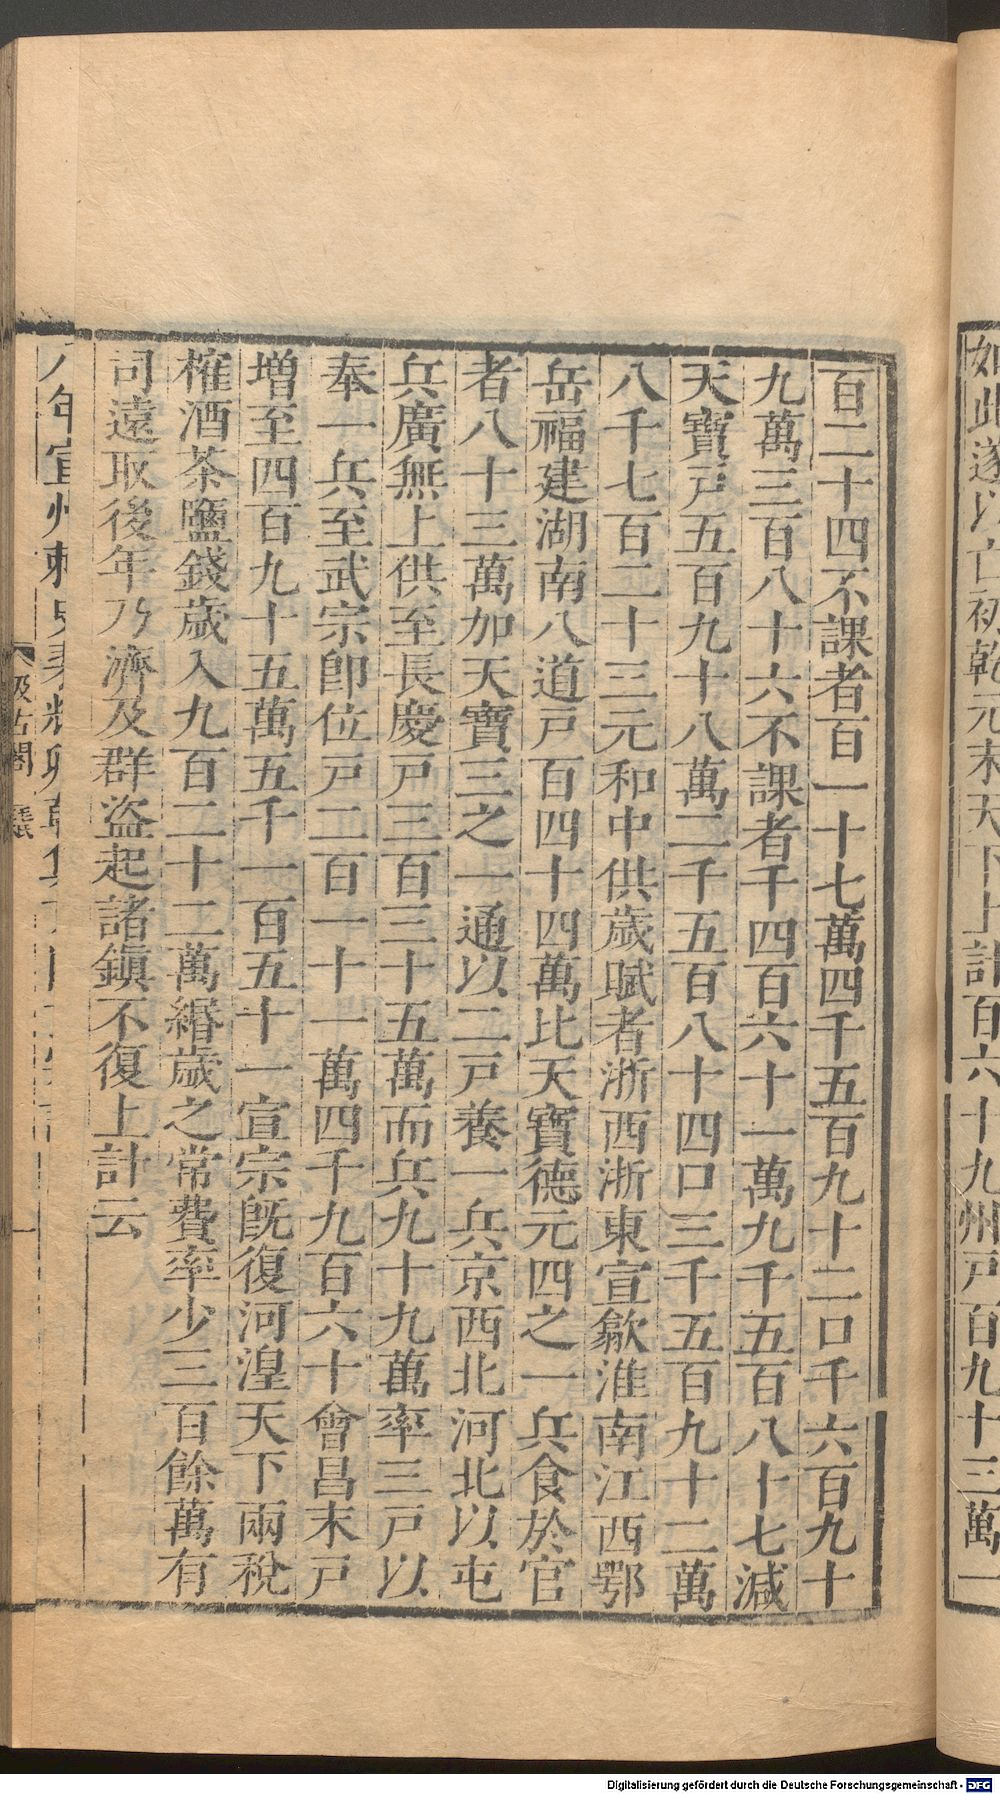 如此遂以亡初乾元末天下上計百六十九州戸百九十三萬一
百二十四不課者百一十七萬四千五百九十二口千六百九十
九萬三百八十六不課者千四百六十一萬九千五百八十七減
天寶戸五百九十八萬二千五百八十四口三千五百九十二萬
八千七百二十三元和中供歲賦者浙西浙東宣歙淮南江西鄂
岳福建湖南八道戸百四十四萬比天寶德元四之一兵食於官
者八十三萬加天寶三之一通以二戸養一兵京西北河北以屯
兵廣無上供至長慶戸三百三十五萬而兵九十九萬率三戸以
奉一兵至武宗卽位戸二百一十一萬四千九百六十會昌末戸
增至四百九十五萬五千一百五十一宣宗旣復河湟天下兩稅
榷酒茶鹽錢歲入九百二十二萬緡歲之常費率少三百餘萬有
司遠取後年乃濟及群盜起諸鎭不復上計云
八年宣州刺史
汲古閣
Digitalisierung gefördert durch die Deutsche Forschungsgemeinschaft - DFG